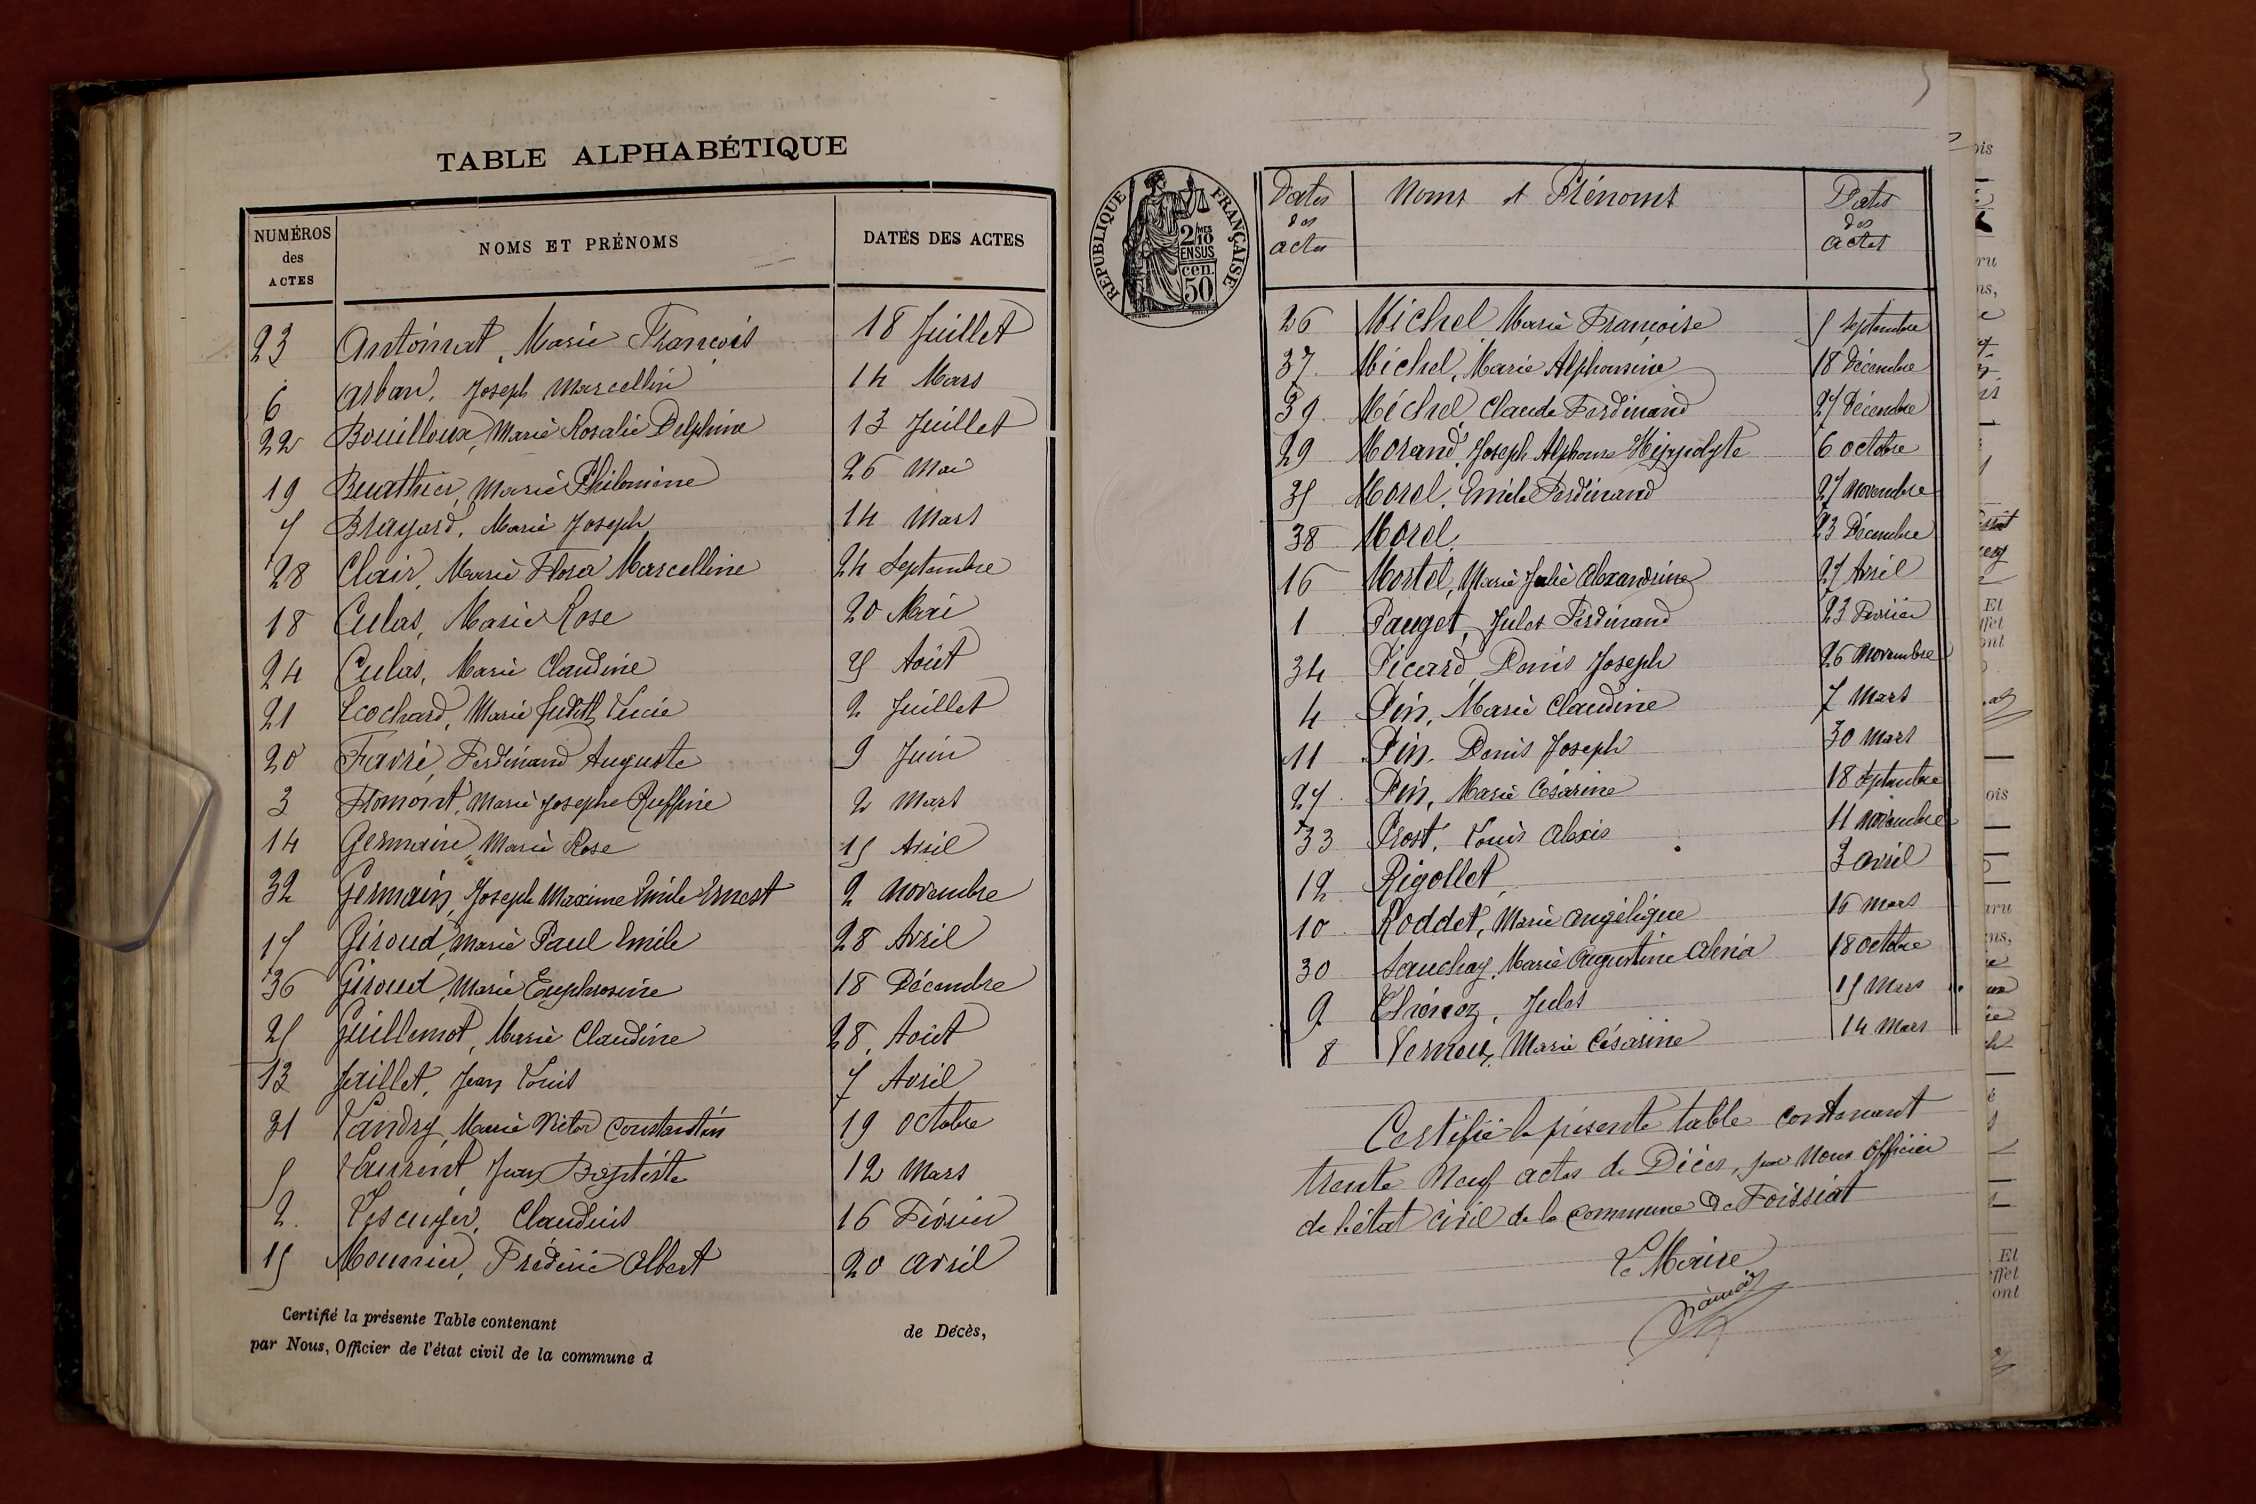 TABLE ALPHABÉTIQUE
NUMÉROS des ACTES NOMS ET PRÉNOMS DATES DES ACTES
23 Antoinat, Marie François 18 Juillet
6 Arban, Joseph Marcellin 14 Mars
22 Bouilloux, Marie Rosalie Delphine 13 Juillet
19 Buathier, Marie Philomène 26 Mai
7 Brayard, Marie Joseph 14 Mars
28 Clair, Marie Flora Marcelline 24 Septembre
18 Culas, Marie Rose 20 Mai
24 Culas, Marie Claudine 5 Août
21 Ecochard, Marie Judith Lucie 2 Juillet
20 Favre, Ferdinand Auguste 9 Juin
3 Flomont, Marie Josephe Ruffine 2 Mars
14 Germain, Marie Rose 15 Avril
32 Germain, Joseph Maxime Emile Ernest 2 Novembre
17 Giroud, Marie Paul Emile 28 Avril
36 Giroud, Marie Euphrosine 18 Décembre
25 Guillemot, Marie Claudine 28 Août
13 Jaillet, Jean Louis 7 Avril
31 Landry, Marie Victor Constantin 19 Octobre
5 Laurent, Jean Baptiste 12 Mars
2 Claudius 16 Février
15 Mounier, Frédéric Albert 20 Avril
Certifié la présente Table contenant de Décès,
par Nous, Officier de l'état civil de la commune d
RÉPUBLIQUE FRANÇAISE
2/10 MES
EN SUS
50 cen.
Dates des actes Noms et Prénoms Dates des actes
26 Michel Marie Françoise 5 Septembre
37 Michel, Marie Alphonsine 18 Décembre
39 Michel, Claude Ferdinand 27 Décembre
29 Morand, Joseph Alphonse Hippolyte 6 octobre
35 Morel, Emile Ferdinand 27 Novembre
38 Morel, 23 Décembre
16 Mortel, Marie Julie Alexandrine 27 Avril
1 Pauget, Jules Ferdinand 23 Février
34 Picard, Denis Joseph 26 Novembre
4 Pin, Marie Claudine 7 Mars
11 Pin, Denis Joseph 30 Mars
27 Pin, Marie Césarine 18 Septembre
33 Prost, Louis Alexis 11 Novembre
12 Rigollet, 3 avril
10 Roddet, Marie Angélique 16 Mars
30 Sauchay, Marie Augustine 18 octobre
9 Thénoz, Jules 15 Mars
8 Vernoux, Marie Césarine 14 Mars
Certifié la présente table contenant
trente neuf actes de Décès, par Nous Officier
de l'état civil de la commune de Foissiat
Le Maire